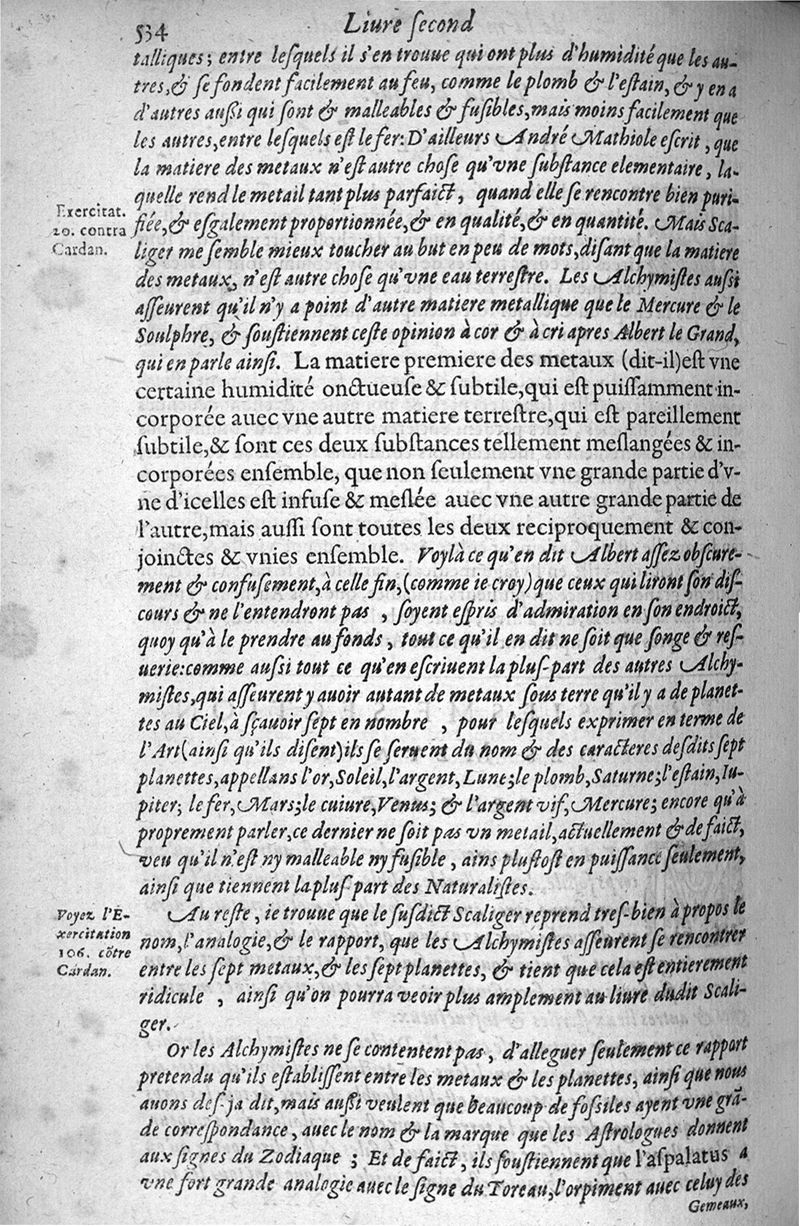 534
Liure ſecond
talliques; entre leſquels il s'en trouue qui ont plus d'humidité que les au-
tres, & ſe fondent facilement au feu, comme le plomb & l'eſtain, & y en a
d'autres auſſi qui ſont & malleables & fuſibles, mais moins facilement que
les autres, entre leſquels eſt le fer: D'ailleurs André Mathiole eſcrit, que
la matiere des metaux n'eſt autre choſe qu'vne ſubſtance elementaire, la-
quelle rend le metail tant plus parfaict, quand elle ſe rencontre bien puri-
Exercitat.
20. contra
Cardan.
fiée, & eſgalement proportionnée, & en qualité, & en quantité. Mais Sca-
liger me ſemble mieux toucher au but en peu de mots, diſant que la matiere
des metaux, n'eſt autre choſe qu'vne eau terreſtre. Les Alchymiſtes auſſi
aſſeurent qu'il n'y a point d'autre matiere metallique que le Mercure & le
Soulphre, & ſouſtiennent ceſte opinion à cor & à cri apres Albert le Grand,
qui en parle ainſi. La matiere premiere des metaux (dit-il) eſt vne
certaine humidité onctueuſe & ſubtile, qui eſt puiſſamment in-
corporée auec vne autre matiere terreſtre, qui eſt pareillement
ſubtile, & ſont ces deux ſubſtances tellement meſlangées & in-
corporées enſemble, que non ſeulement vne grande partie d'v-
ne d'icelles eſt infuſe & meſlée auec vne autre grande partie de
l'autre, mais auſſi ſont toutes les deux reciproquement & con-
joinctes & vnies enſemble. Voylà ce qu'en dit Albert aſſez obſcure-
ment & confuſement, à celle fin, (comme ie croy) que ceux qui liront ſon diſ-
cours & ne l'entendront pas, ſoyent eſpris d'admiration en ſon endroict,
quoy qu'à le prendre au fonds, tout ce qu'il en dit ne ſoit que ſonge & reſ-
uerie: comme auſſi tout ce qu'en eſcriuent la pluſ-part des autres Alchy-
miſtes, qui aſſeurent y auoir autant de metaux ſous terre qu'il y a de planet-
tes au Ciel, à ſçauoir ſept en nombre, pour leſquels exprimer en terme de
l'Art (ainſi qu'ils diſent) ils ſe ſeruent du nom & des caracteres deſdits ſept
planettes, appellans l'or, Soleil, l'argent, Lune; le plomb, Saturne; l'eſtain, Iu-
piter; le fer, Mars; le cuiure, Venus; & l'argent vif, Mercure; encore qu'à
proprement parler, ce dernier ne ſoit pas vn metail, actuellement & de faict,
veu qu'il n'eſt ny malleable ny fuſible, ains pluſtoſt en puiſſance ſeulement,
ainſi que tiennent la pluſ-part des Naturaliſtes.
Voyez l'E-
xercitation
106. cõtre
Cardan.
Au reſte, ie trouue que le ſuſdict Scaliger reprend treſ-bien à propos le
nom, l'analogie, & le rapport, que les Alchymiſtes aſſeurent ſe rencontrer
entre les ſept metaux, & les ſept planettes, & tient que cela eſt entierement
ridicule, ainſi qu'on pourra veoir plus amplement au liure dudit Scali-
ger.
Or les Alchymiſtes ne ſe contentent pas, d'alleguer ſeulement ce rapport
pretendu qu'ils eſtabliſſent entre les metaux & les planettes, ainſi que nous
auons deſ-ja dit, mais auſſi veulent que beaucoup de foſſiles ayent vne grã-
de correſpondance, auec le nom & la marque que les Aſtrologues donnent
aux ſignes du Zodiaque; Et de faict, ils ſouſtiennent que l'aſpalatus a
vne fort grande analogie auec le ſigne du Toreau, l'orpiment auec celuy des
Gemeaux,